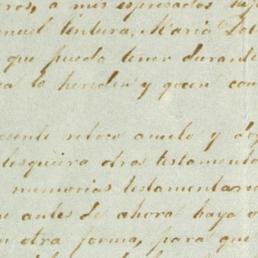 ros, a mis espresados
nuel Ventura, Maria
que pueda tener durante
la hereden y gocen con
esente reboco anulo y
lesquiera otros testamento
memorias testamentar
e antes de ahora haya o
n otra forma, para que